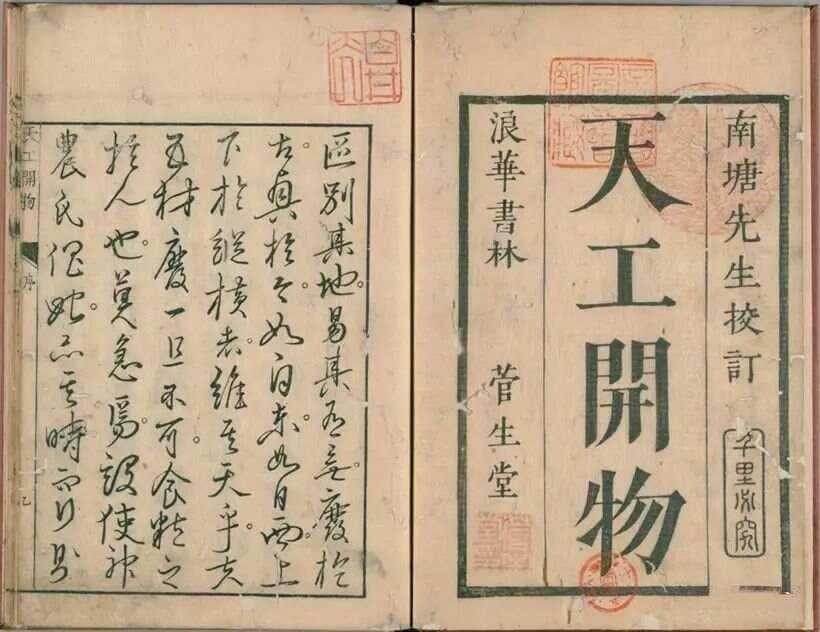 南塘先生挍訂
千里必究
天工開物
浪華書林 菅生堂
區別其地。易其有無。廢於
古。具於今。如自東。如自西。上
下於縱橫者。維其天乎。夫
五材廢一且不可。食粒之
於人也。莫急焉。設使神
農氏 其時而行則
天工開物 序